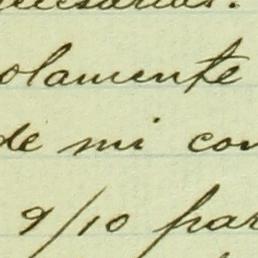 necesarias.
olamente
de mi con
9/10 par